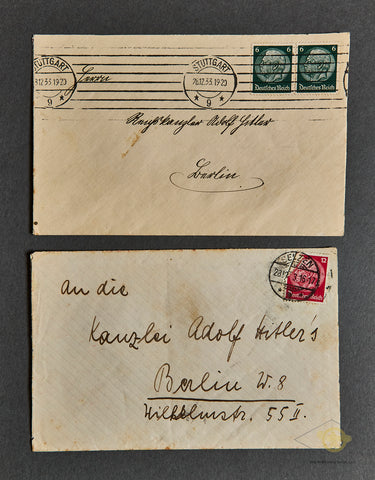 STUTTGART
28.12.33.19-20
9
STUTTGART
28.12.33.19-20
9
6 6
6 6
Deutsches Reich
Deutsches Reich
Herrn
Reichskanzler Adolf Hitler
Berlin.
12
An die
Kanzlei Adolf Hitler's
Berlin W. 8
Wilhelmstr. 55 II.